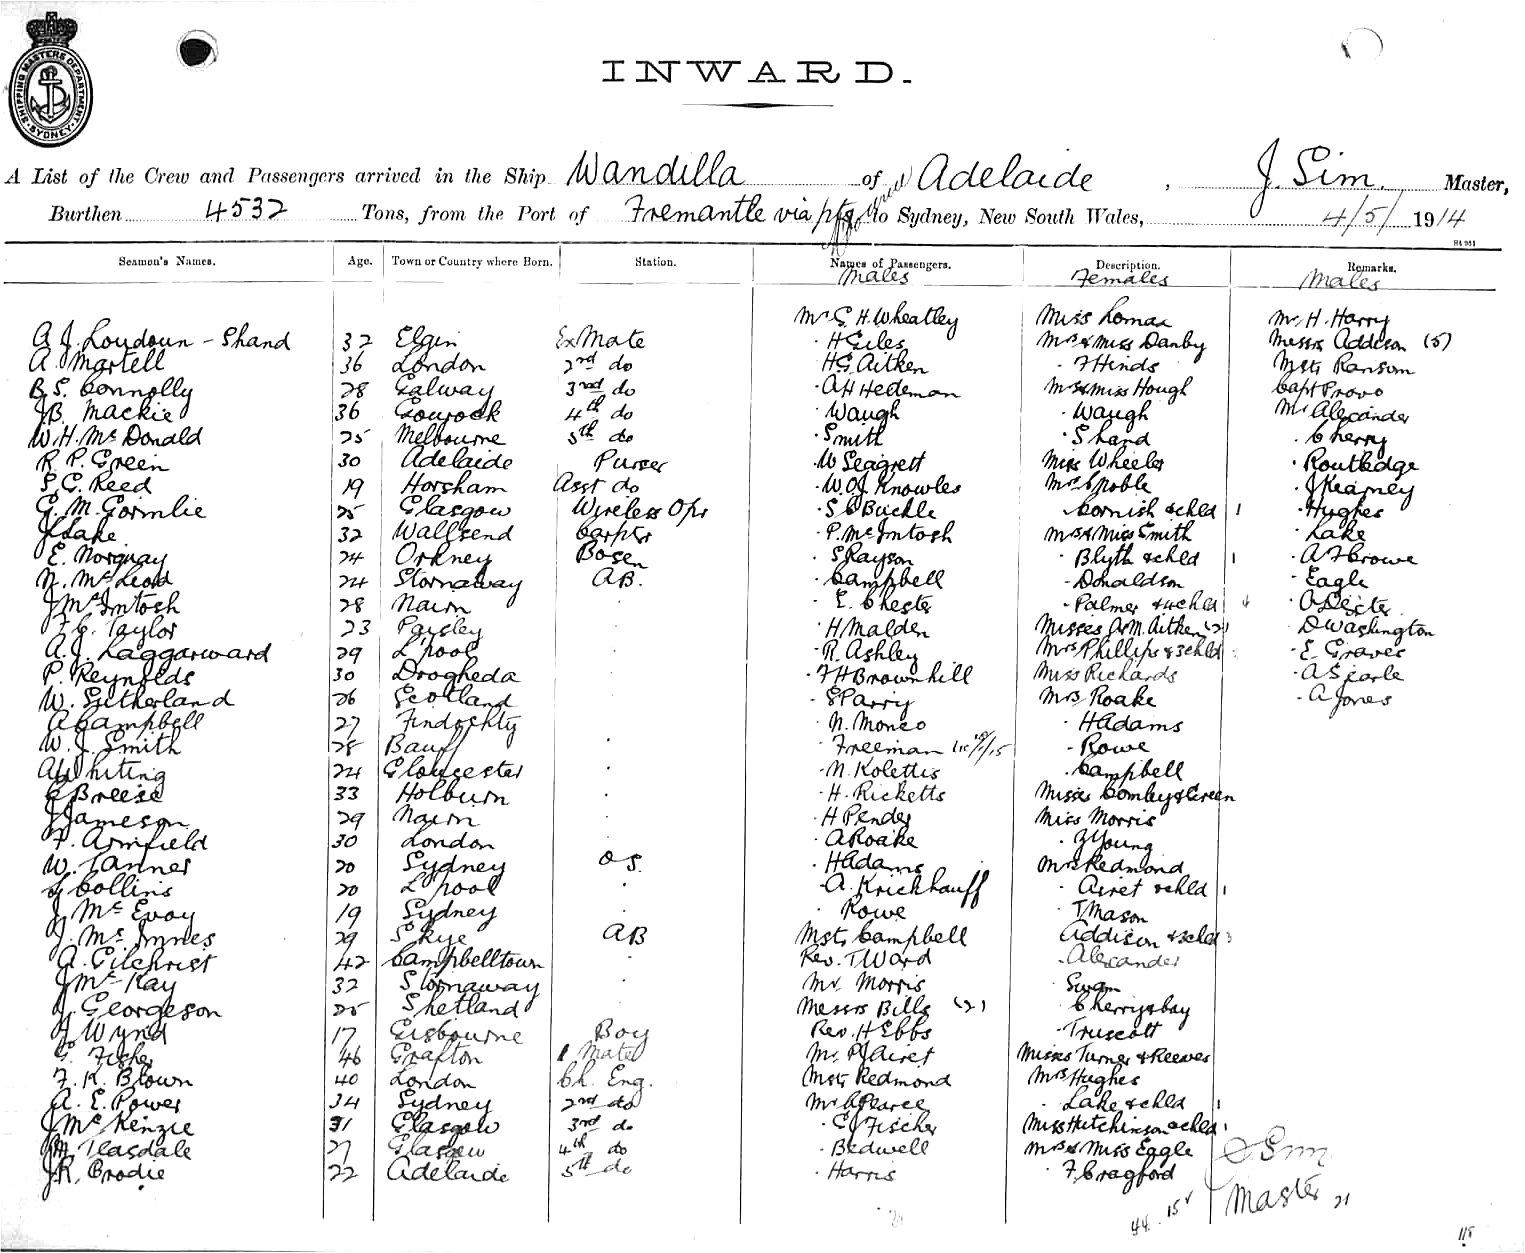 SHIPPING MASTERS DEPARTMENT SYDNEY
INWARD.
A List of the Crew and Passengers arrived in the Ship Wandilla of Adelaide, J. Sim. Master,
Burthen 4532 Tons, from the Port of Fremantle via pts to Sydney, New South Wales, 4/5/1914
Seamen's Names. Age. Town or Country where Born. Station. Names of Passengers. Description. Remarks.
Males Females Males
Mr G. H. Wheatley Miss Lomax Mr H. Harry
A. J. Loudoun - Shand 32 Elgin Ex Mate · H Giles Mrs & Miss Danby Messrs Addison (5)
A. Martell 36 London 2nd do · H G. Aitken · F Hinds Mstr Ransom
B. S. Connolly 28 Galway 3rd do · A H Hedeman Mrs & Miss Hough Capt Provo
J. B. Mackie 36 Gourock 4th do · Waugh · Waugh Mr Alexander
W. H. McDonald 25 Melbourne 5th do · Smith · Shand · Cherry
R. P. Green 30 Adelaide Purser · W Seagrett Miss Wheeler · Routledge
S. G. Reed 19 Horsham Asst do · W. O. J. Knowles Mrs Noble · J Kearney
G. M. Gormlie 25 Glasgow Wireless Opr · S C Buckle · Cornish & chld 1 · Hughes
J Lake 32 Wallsend Carpter · P. McIntosh Mrs & Miss Smith · Lake
E. Norquay 24 Orkney Bosen · S Rayson · Blyth & chld 1 · A F Crowe
N. McLeod 24 Stornaway A.B. · Campbell · Donaldson · Eagle
J McIntosh 28 Nairn · · E. Chester · Palmer & 4 chld 4 · A Dexter
F. C. Taylor 23 Paisley · · H Malden Misses A. M. Aitken (2) · D Washington
A. J. Laggarward 29 L'pool · · R. Ashley Mrs Phillips & 3 chld · E. Graves
P. Reynolds 30 Drogheda · · F H Brownhill Miss Richards · A Searle
W. Sutherland 26 Scotland · · E Parry Mrs Roake · A Jones
A Campbell 27 Findochty · · N. Monco · H Adams
W. J. Smith 28 Banff · · Freeman · Rowe
A Whiting 24 Gloucester · · N. Kolettis · Campbell
E Breese 33 Holburn · · H. Ricketts Misses Comley & Green
J Jameson 29 Nairn · · H Pender Miss Morris
F. Armfield 30 London · · A Roake · Z Young
W. Tanner 20 Sydney O S. · H Adams Mrs Redmond
J Collins 20 L'pool · · A. Krichhauff · Airet & chld 1
J McEvoy 19 Sydney · · Rowe · T Mason
J. McInnes 29 Skye AB Mstr Campbell Addison & 3 chld 3
A. Gilchrist 42 Campbelltown · Rev. T Ward · Alexander
J McKay 32 Stornaway · Mr. Morris · Swan
J Georgeson 25 Shetland · Messrs Bills (2) · Cherry & bay
J Wynd 17 Gisbourne Boy Rev. H Ebbs · Truscott
G. Fisher 46 Grafton 1 Mate Mr P J Airet Misses Turner & Reeves
F. K. Blown 40 London Ch. Eng. Mstr Redmond Mrs Hughes
A. E. Power 34 Sydney 2nd do Mr C Pearce · Lake & chld 1
J McKenzie 31 Glasgow 3rd do · C J Fischer Miss Hutchinson & chld 1
H Teasdale 27 Glasgow 4th do · Bedwell Mrs & Miss Eagle J Sim
J. R. Brodie 22 Adelaide 5th do · Harris · F Cragford Master 21
44 15
115